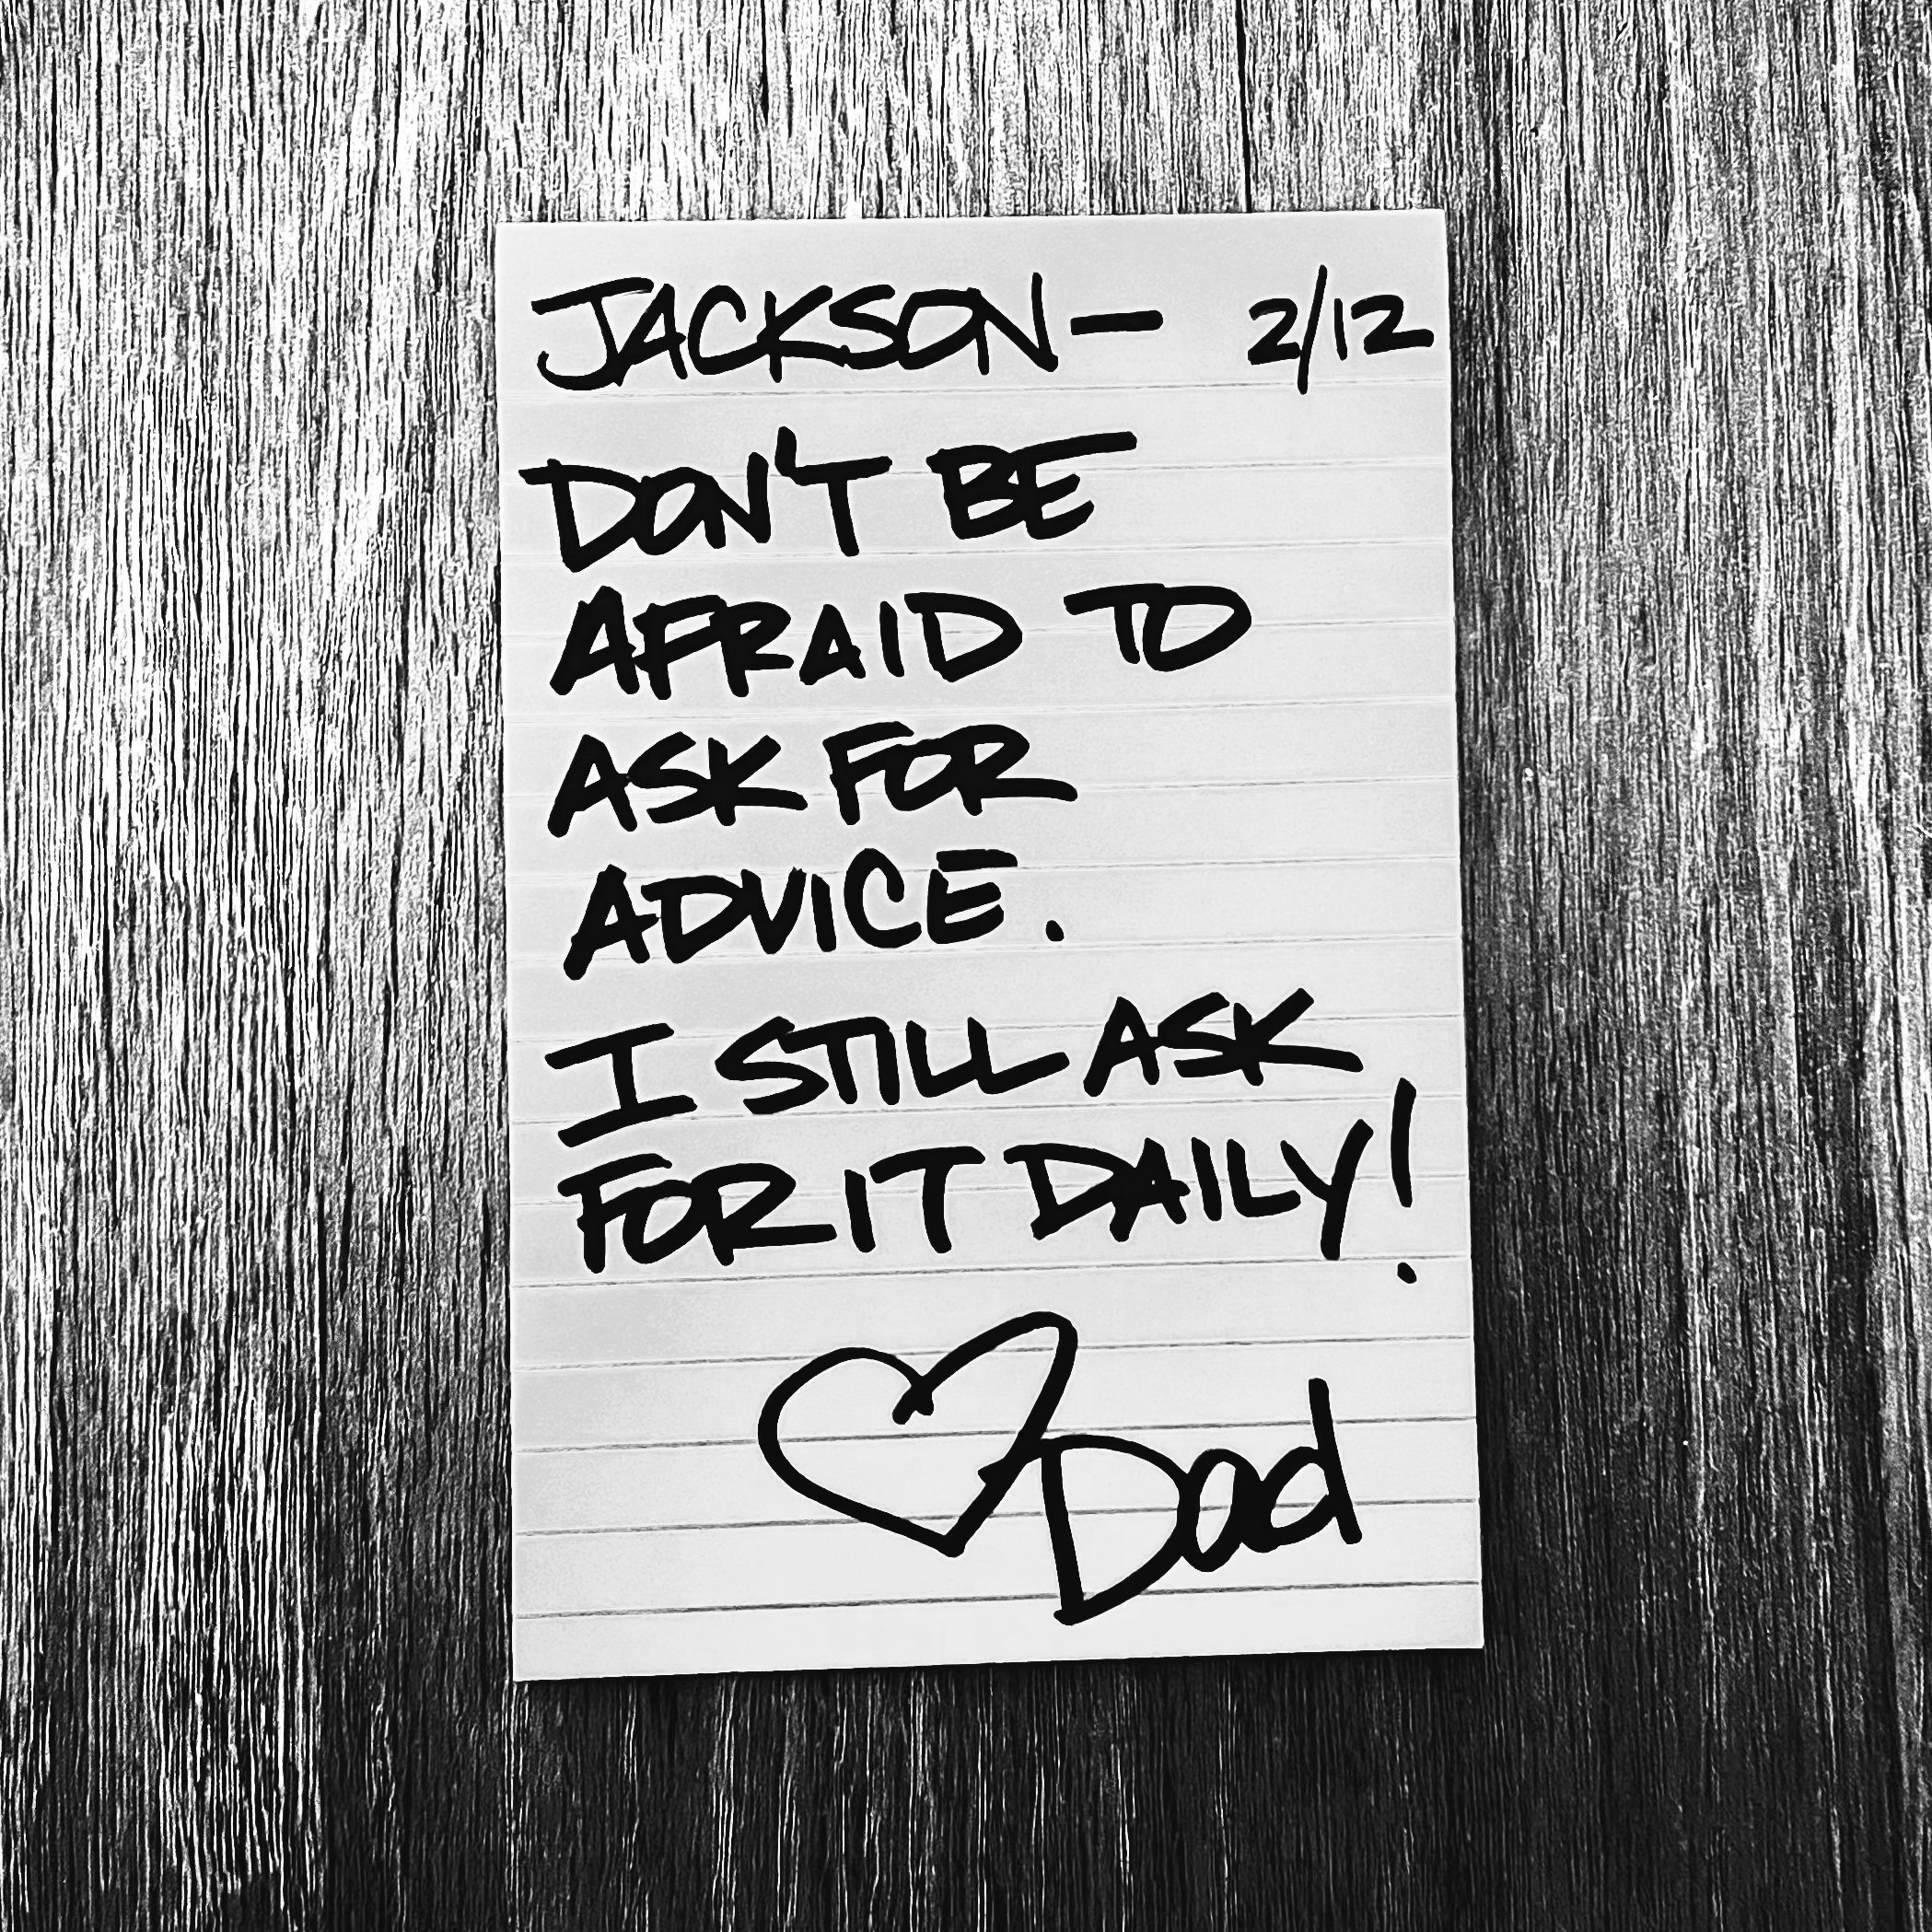 JACKSON— 2/12
DON'T BE
AFRAID TO
ASK FOR
ADVICE.
I STILL ASK
FOR IT DAILY!
Dad